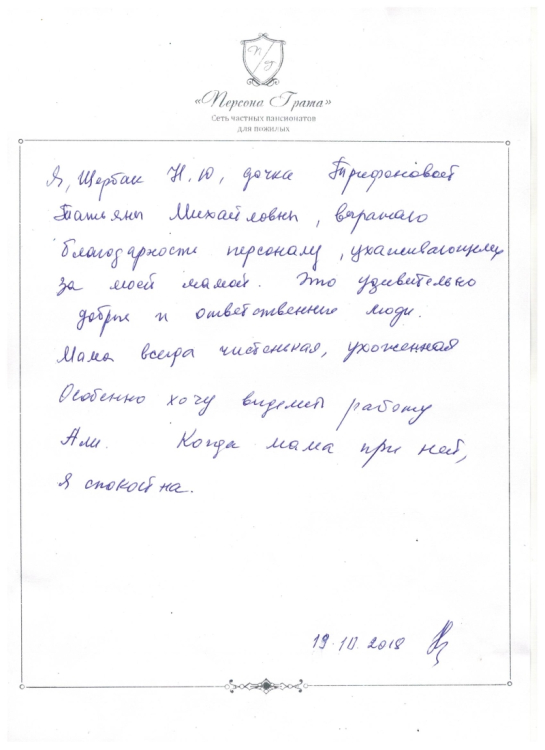 П Г
«Персона Грата»
Сеть частных пансионатов
для пожилых
Я, Щербак Н.Ю, дочка Трифоновой
Татьяны Михайловны, выражаю
благодарность персоналу, ухаживающему
за моей мамой. Это удивительно
добрые и ответственные люди.
Мама всегда чистенькая, ухоженная
Особенно хочу выделить работу
Али. Когда мама при ней,
я спокойна.
19.10.2018